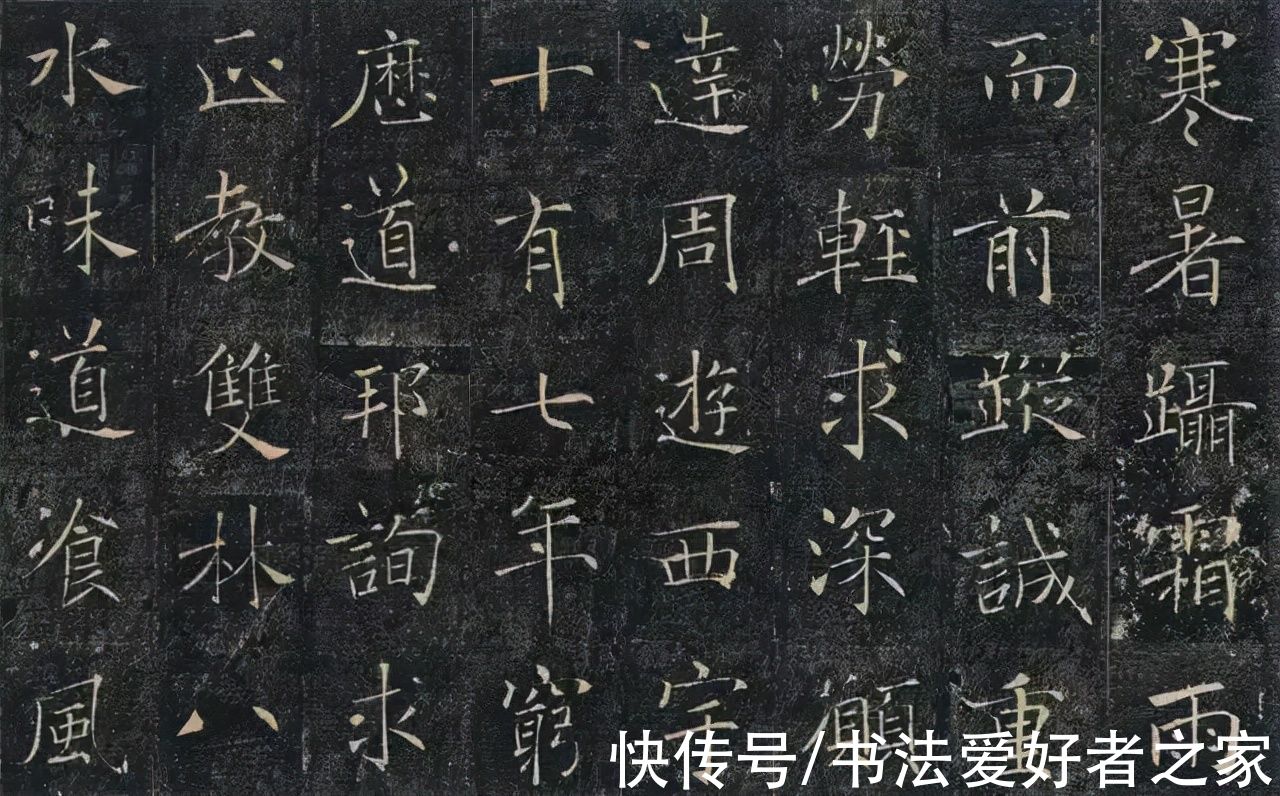 寒暑躡霜雨
而前蹤誠重
勞輕求深願
達周遊西宇
十有七年窮
歷道邦詢求
正教雙林八
水味道飡風
快传号/书法爱好者之家